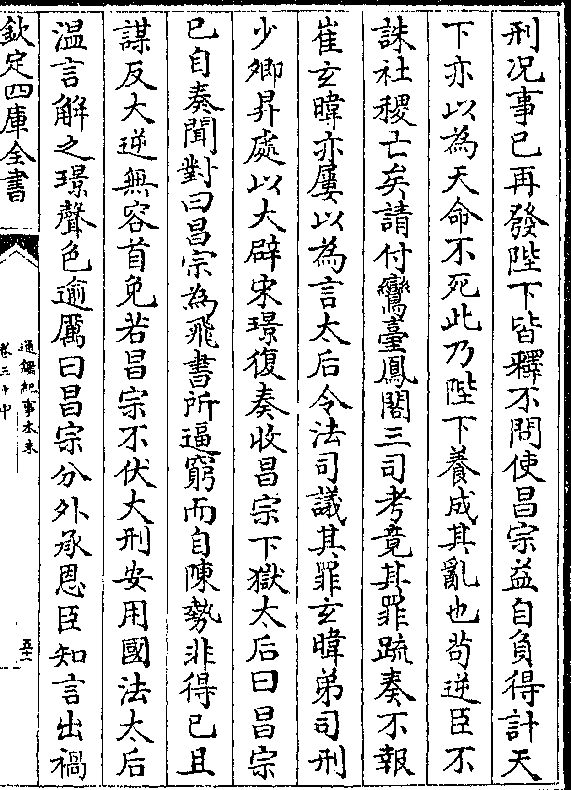 刑况事已再發陛下皆釋不問使昌宗益自負得計天
下亦以為天命不死此乃陛下養成其亂也茍逆臣不
誅社稷亡矣請付鸞臺鳳閣三司考竟其罪疏奏不報
崔玄暐亦屢以為言太后令法司議其罪玄暐弟司刑
少卿昇處以大辟宋璟復奏收昌宗下獄太后曰昌宗
已自奏聞對曰昌宗為飛書所逼窮而自陳勢非得已且
謀反大逆無容首免若昌宗不伏大刑安用國法太后
温言解之璟聲色逾厲曰昌宗分外承恩臣知言出禍
欽定四庫全書
通鑑紀事本末
卷三十中